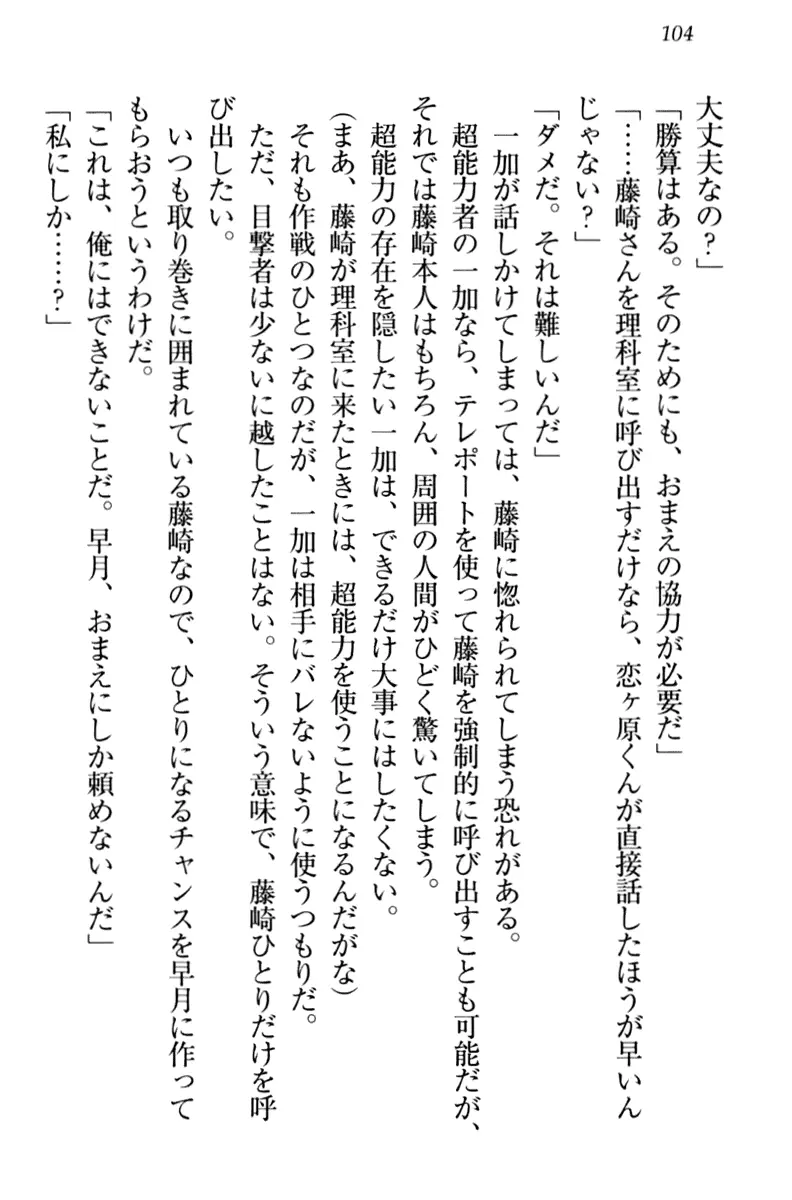 104
大丈夫なの？」
「勝算はある。そのためにも、おまえの協力が必要だ」
「……藤崎さんを理科室に呼び出すだけなら、恋ヶ原くんが直接話したほうが早いん
じゃない？」
「ダメだ。それは難しいんだ」
　一加が話しかけてしまっては、藤崎に惚れられてしまう恐れがある。
　超能力者の一加なら、テレポートを使って藤崎を強制的に呼び出すことも可能だが、
それでは藤崎本人はもちろん、周囲の人間がひどく驚いてしまう。
　超能力の存在を隠したい一加は、できるだけ大事にはしたくない。
（まあ、藤崎が理科室に来たときには、超能力を使うことになるんだがな）
　それも作戦のひとつなのだが、一加は相手にバレないように使うつもりだ。
　ただ、目撃者は少ないに越したことはない。そういう意味で、藤崎ひとりだけを呼
び出したい。
　いつも取り巻きに囲まれている藤崎なので、ひとりになるチャンスを早月に作って
もらおうというわけだ。
「これは、俺にはできないことだ。早月、おまえにしか頼めないんだ」
「私にしか……？」